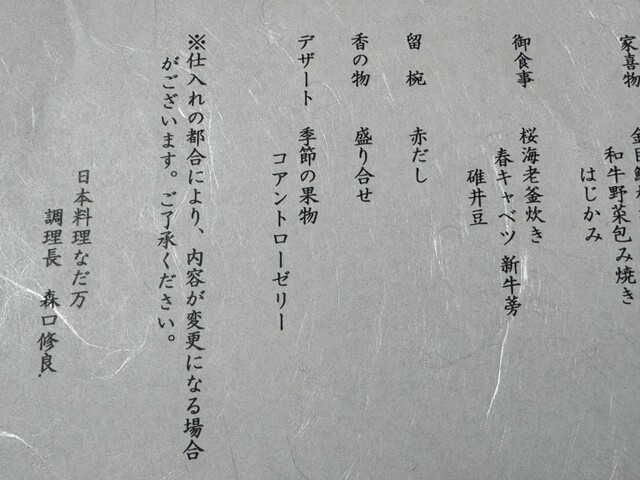 家喜物
和牛野菜包み焼き
はじかみ
御食事 桜海老釜炊き
春キャベツ 新牛蒡
碓井豆
留椀 赤だし
香の物 盛り合せ
デザート 季節の果物
コアントローゼリー
※仕入れの都合により、内容が変更になる場合
がございます。ご了承ください。
日本料理なだ万
調理長 森口修良